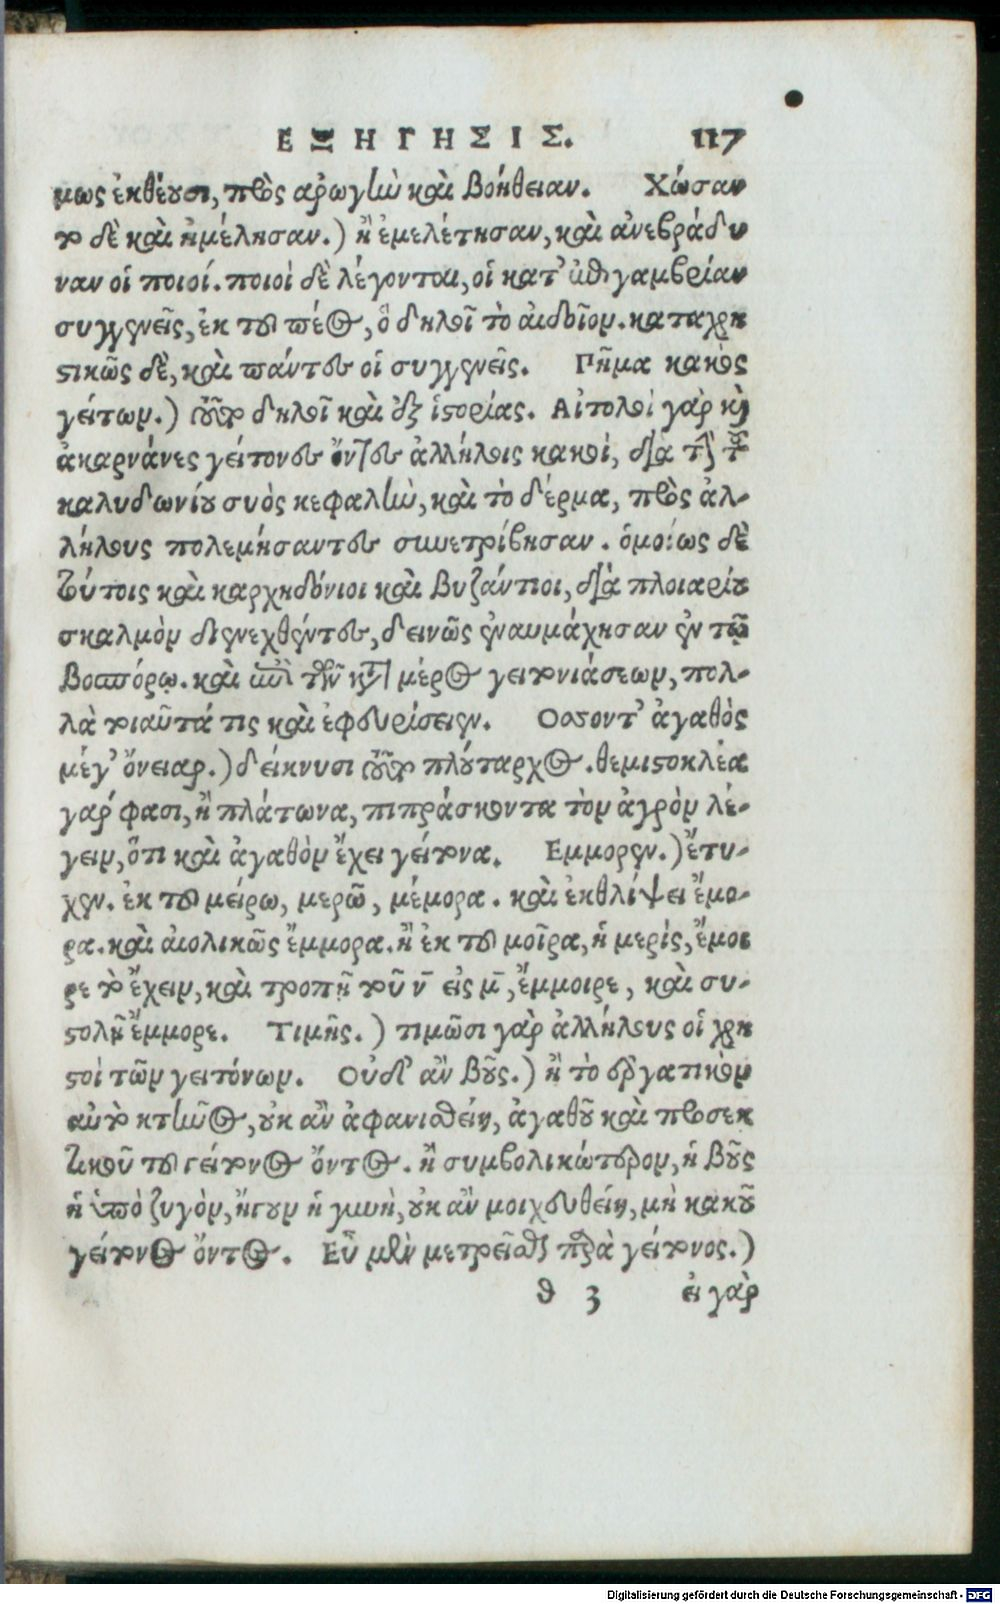 ΕΞΗΓΗΣΙΣ. 117
μως ἐκθέουσι, πρὸς ἀρωγὴν καὶ βοήθειαν. Χώσαν
το δὲ καὶ ἠμέλησαν.) ἢ ἐμελέτησαν, καὶ ἀνεβράδυ
ναν οἱ πηοί. πηοὶ δὲ λέγονται, οἱ κατ’ ἐπιγαμβρίαν
συγγενεῖς, ἐκ τοῦ πέος, ὃ δηλοῖ τὸ αἰδοῖον. καταχρη
στικῶς δὲ, καὶ πάντες οἱ συγγενεῖς. Πῆμα κακὸς
γείτων.) τοῦτο δηλοῖ καὶ ἐξ ἱστορίας. Αἰτολοὶ γὰρ καὶ
ἀκαρνάνες γείτονες ὄντες ἀλλήλοις κακοὶ, διὰ τὴν τοῦ
καλυδωνίου συὸς κεφαλὴν, καὶ τὸ δέρμα, πρὸς ἀλ-
λήλους πολεμήσαντες συνετρίβησαν. ὁμοίως δὲ
τούτοις καὶ καρχηδόνιοι καὶ βυζάντιοι, διὰ πλοιαρίου
σκαλμὸν διενεχθέντες, δεινῶς ἐναυμάχησαν ἐν τῷ
βοσπόρῳ. καὶ ἐπὶ τῶν κατὰ μέρος γειτνιάσεων, πολ-
λὰ τοιαῦτά τις καὶ ἐφευρίσειεν. Οσσοντ’ ἀγαθὸς
μέγ’ ὄνειαρ.) δείκνυσι τοῦτο πλούταρχος. θεμιστοκλέα
γάρ φασι, ἢ πλάτωνα, πιπράσκοντα τὸν ἀγρὸν λέ-
γειν, ὅτι καὶ ἀγαθὸν ἔχει γείτονα. Εμμορεν.) ἔτυ-
χεν. ἐκ τοῦ μείρω, μερῶ, μέμορα. καὶ ἐκθλίψει ἔμο-
ρα. καὶ αἰολικῶς ἔμμορα. ἢ ἐκ τοῦ μοῖρα, ἡ μερίς, ἔμοι
ρε τὸ ἔχειν, καὶ τροπῇ τοῦ ν εἰς μ, ἔμμοιρε, καὶ συ-
στολῇ ἔμμορε. Τιμῆς.) τιμῶσι γὰρ ἀλλήλους οἱ χρη
στοὶ τῶν γειτόνων. Οὐδ’ ἂν βοῦς.) ἢ τὸ ἐργατικὸν
αὐτὸ κτῆνος, οὐκ ἂν ἀφανισθείη, ἀγαθοῦ καὶ προσεκ
τικοῦ τοῦ γείτονος ὄντος. ἢ συμβολικώτερον, ἡ βοῦς
ἡ ὑπὸ ζυγὸν, ἤγουν ἡ γυνὴ, οὐκ ἂν μοιχευθείη, μὴ κακοῦ
γείτονος ὄντος. Εὖ μὲν μετρεῖσθαι παρὰ γείτονος.)
θ 3 εἰ γὰρ
Digitalisierung gefördert durch die Deutsche Forschungsgemeinschaft - DFG